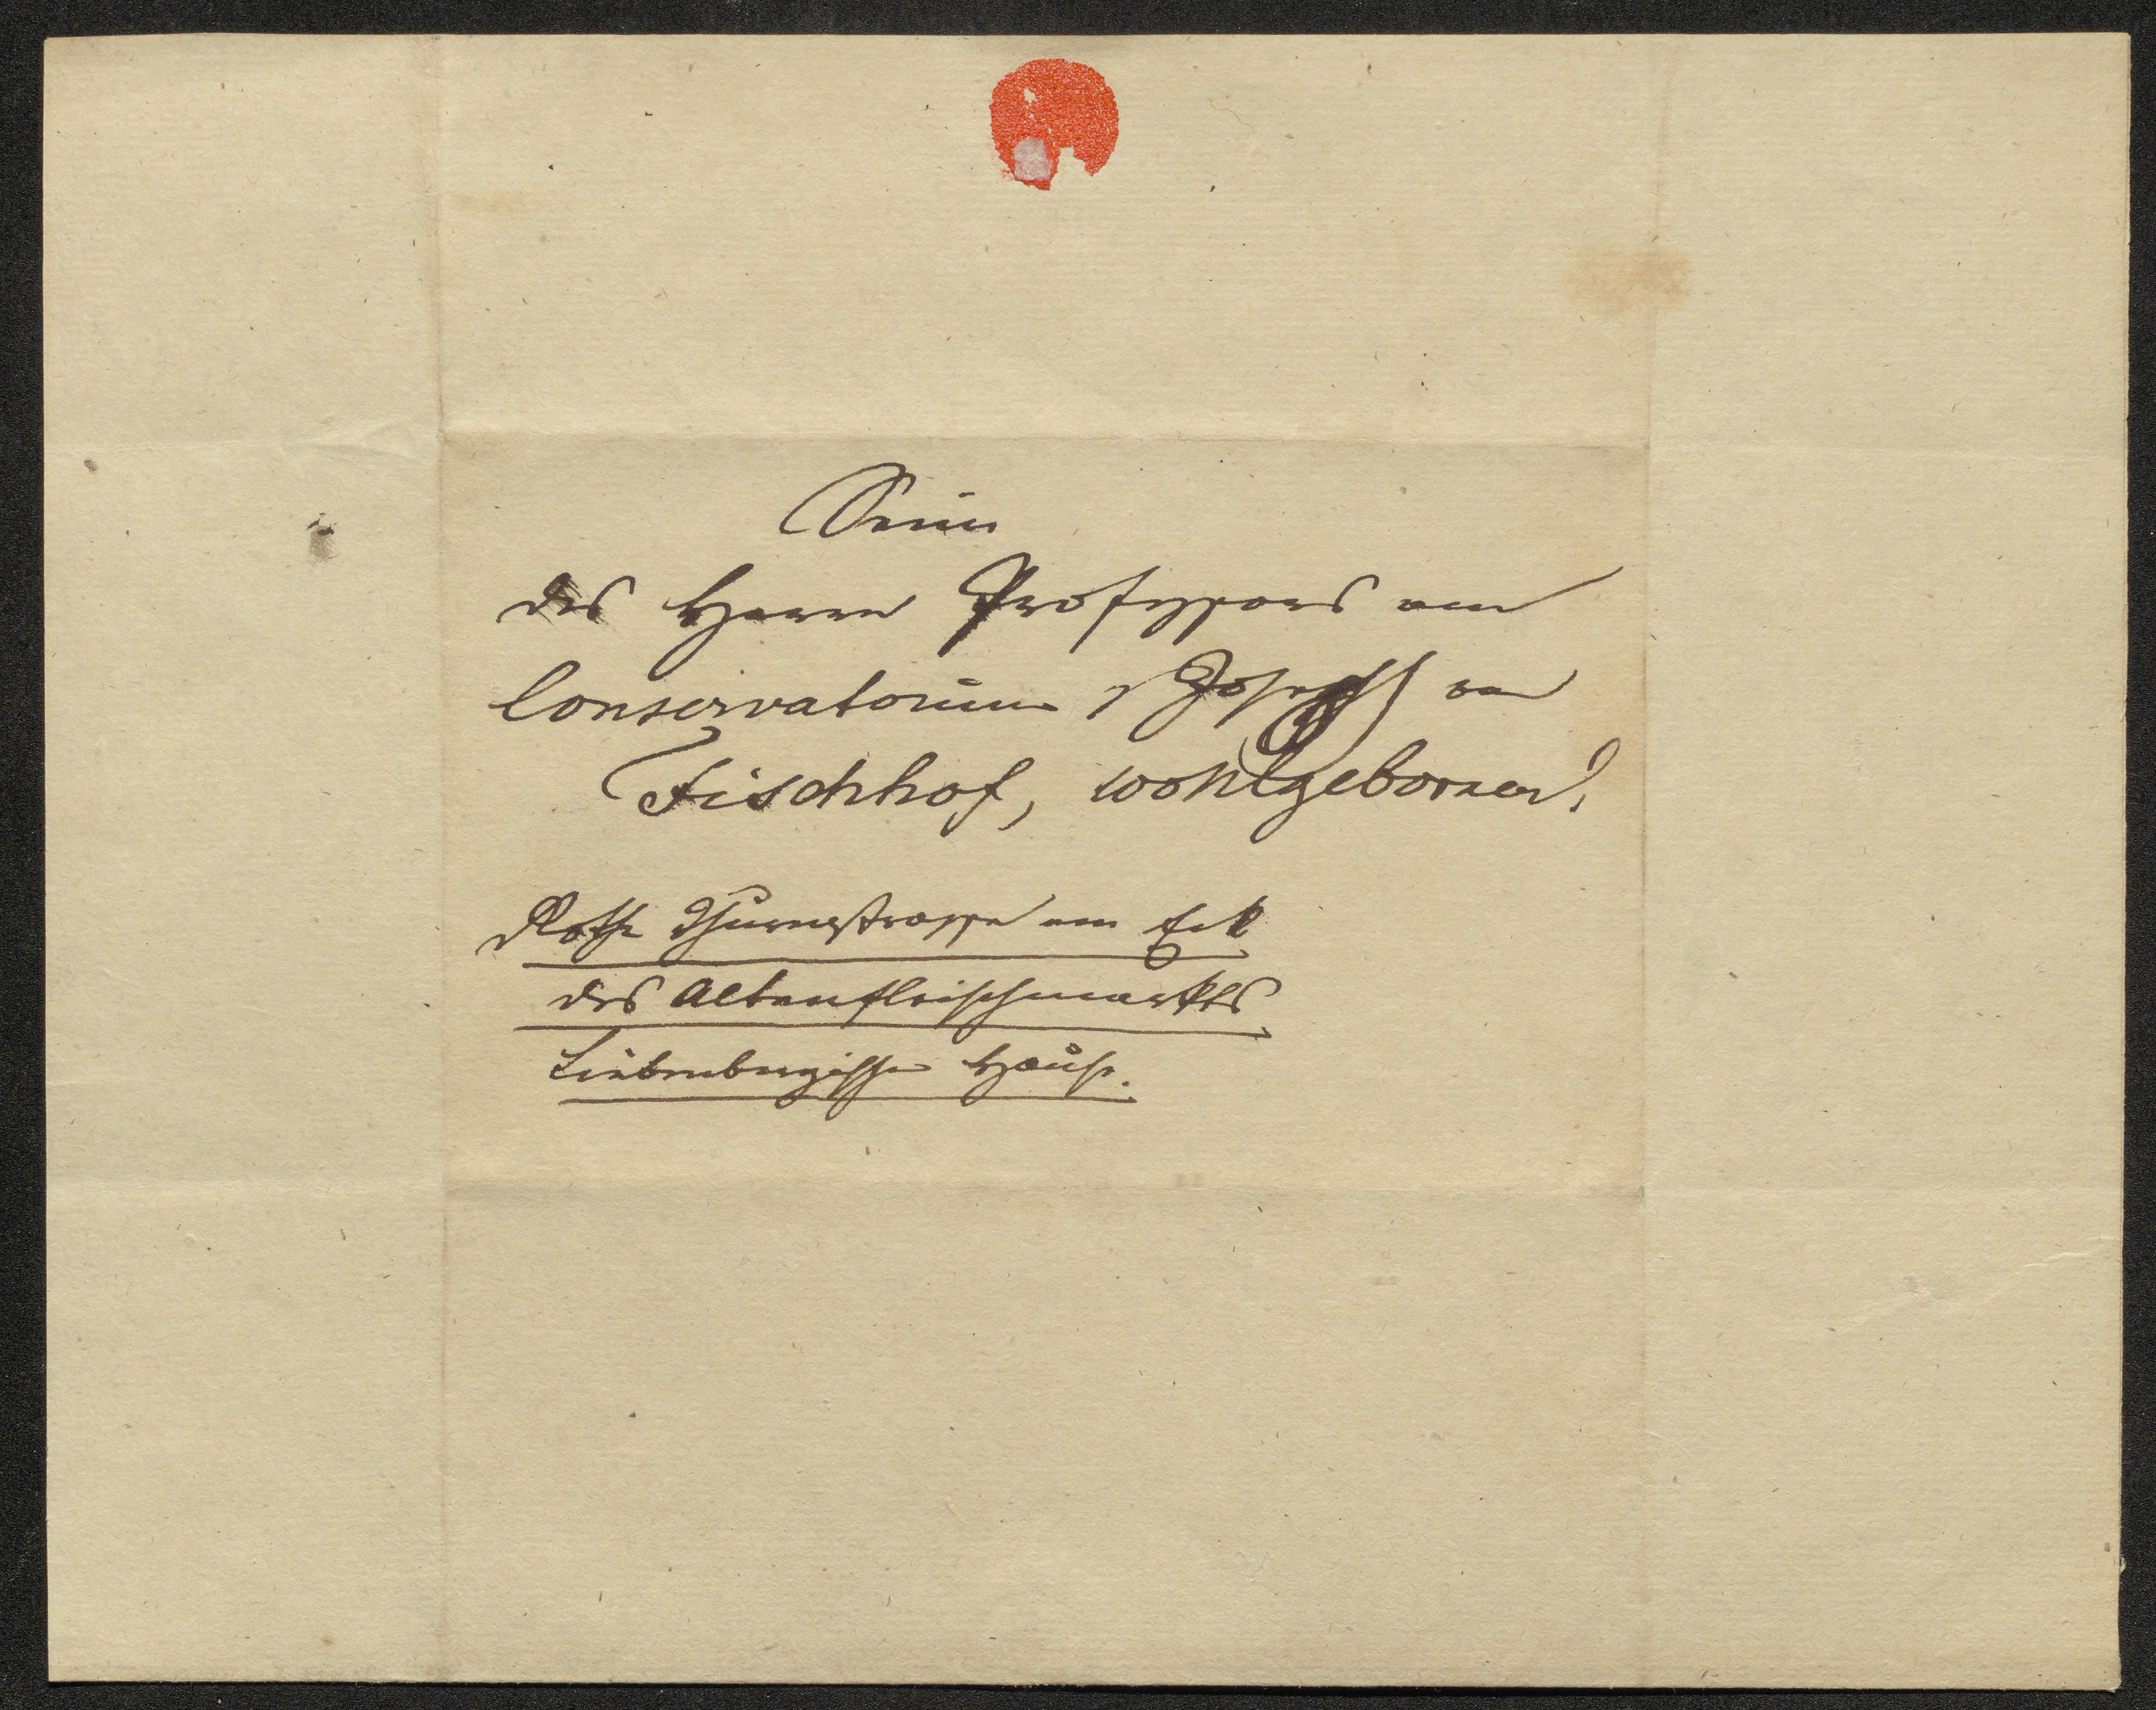 Seiner
des Herrn Professors am
Conservatorium, Joseph von
Fischhof, wohlgeboren!
Rothe Thurmstrasse am Eck
des Altenfleischmarkts
Liebenbergische Hause.